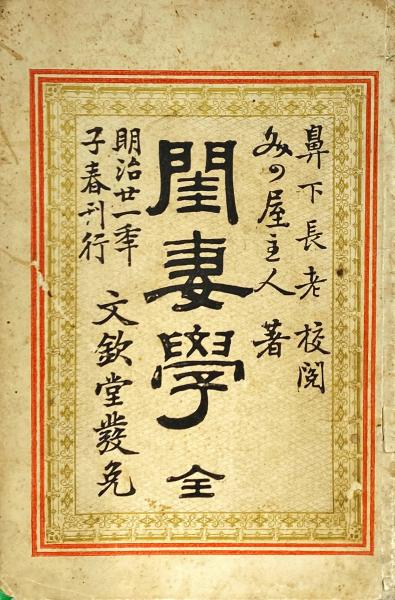 鼻下長老校閲
の屋主人 著
閨妻學 全
明治廿一秊
子春刊行
文欽堂發兌